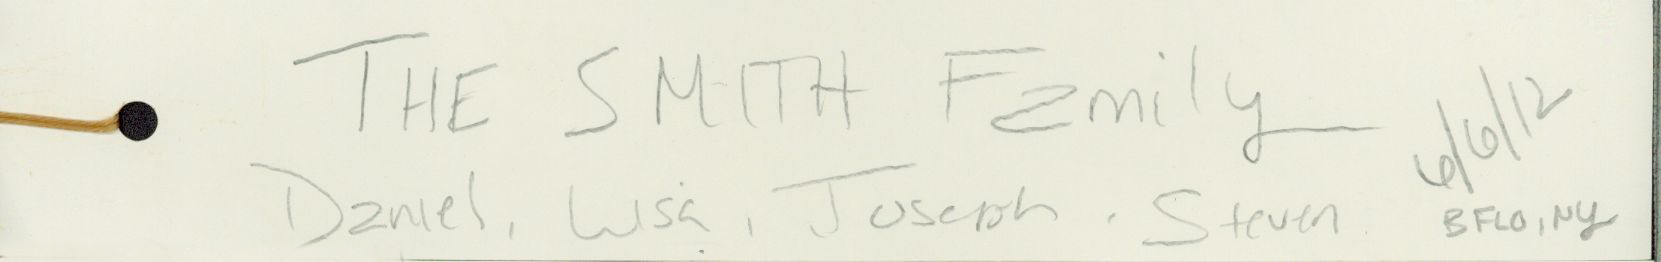 THE SMITH Family
6/6/12
Daniel, Lisa, Joseph, Steven
BFLO, NY